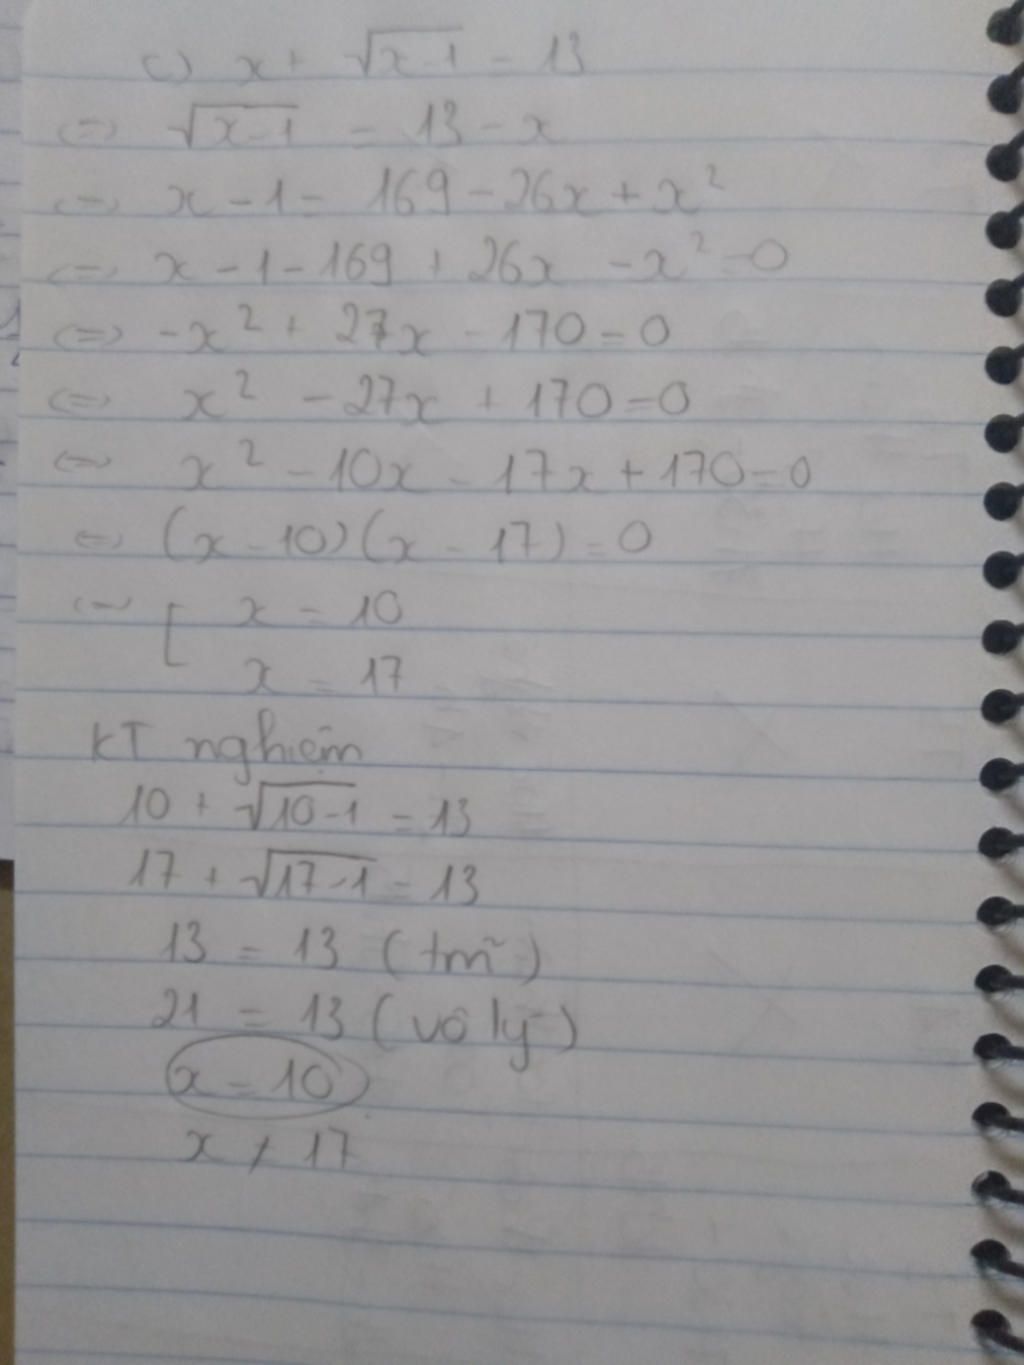 c) x + √x-1 = 13
<=> √x-1 = 13 - x
<=> x - 1 = 169 - 26x + x²
<=> x - 1 - 169 + 26x - x² = 0
<=> -x² + 27x - 170 = 0
<=> x² - 27x + 170 = 0
<=> x² - 10x - 17x + 170 = 0
<=> (x - 10)(x - 17) = 0
<=> [ x = 10
x = 17
KT nghiệm
10 + √10-1 = 13
17 + √17-1 = 13
13 = 13 (tm)
21 = 13 (vô lý)
x = 10
x ≠ 17